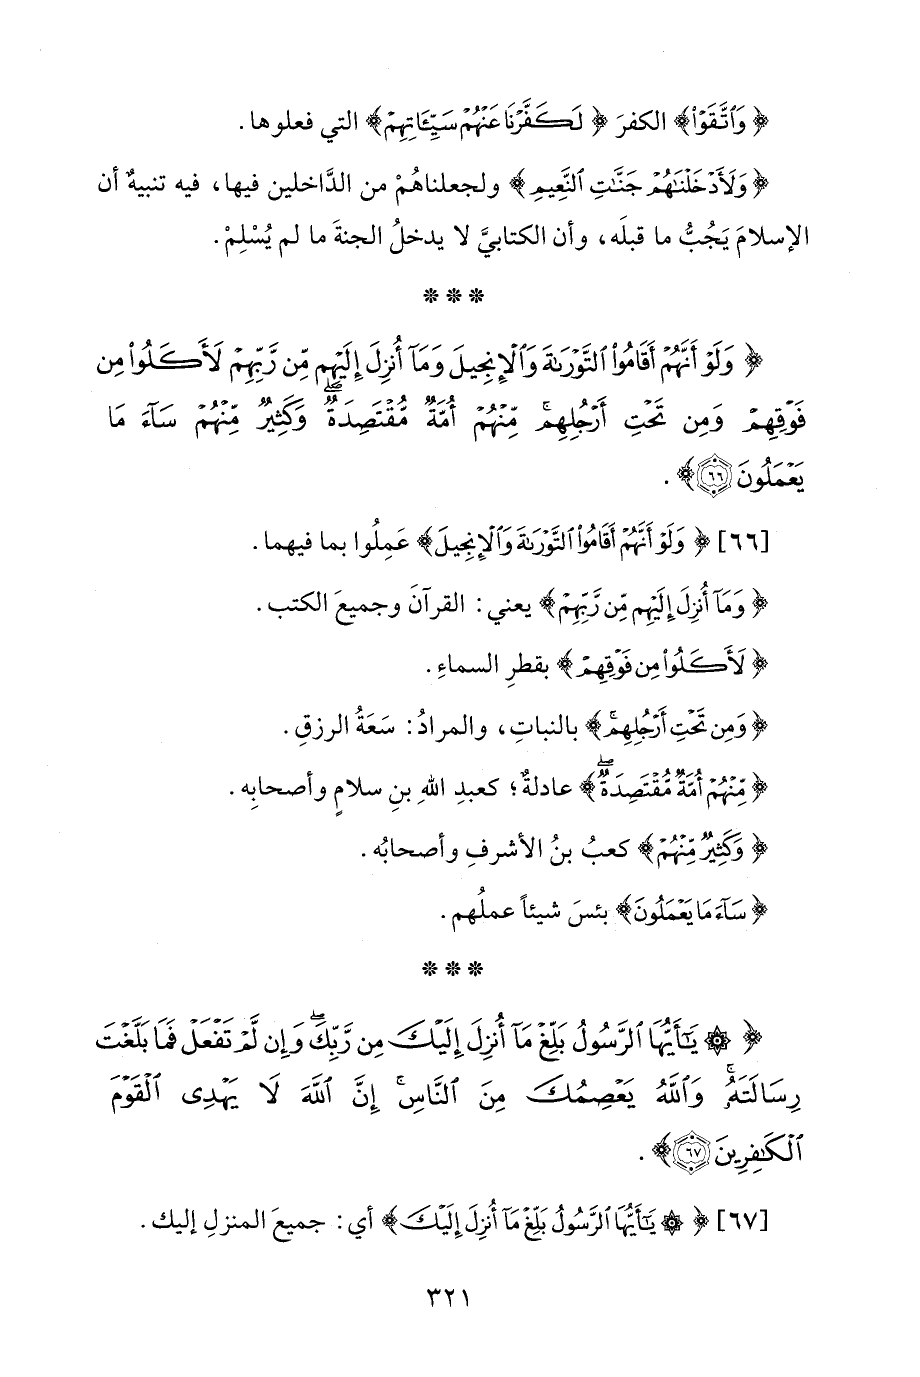 ﴿ وَٱتَّقَوْا۟﴾ الكفرَ ﴿ لَكَفَّرْنَا عَنْهُمْ سَيِّـَٔاتِهِمْ﴾ التي فعلوها.
﴿ وَلَأَدْخَلْنَٰهُمْ جَنَّٰتِ ٱلنَّعِيمِ﴾ ولجعلناهُمْ من الدَّاخلين فيها، فيه تنبيهٌ أن
الإسلامَ يَجُبُّ ما قبلَه، وأن الكتابيَّ لا يدخلُ الجنةَ ما لم يُسْلِمْ.
* * *
﴿ وَلَوْ أَنَّهُمْ أَقَامُوا۟ ٱلتَّوْرَىٰةَ وَٱلْإِنجِيلَ وَمَآ أُنزِلَ إِلَيْهِم مِّن رَّبِّهِمْ لَأَكَلُوا۟ مِن
فَوْقِهِمْ وَمِن تَحْتِ أَرْجُلِهِم ۚ مِّنْهُمْ أُمَّةٌ مُّقْتَصِدَةٌ ۖ وَكَثِيرٌ مِّنْهُمْ سَآءَ مَا
يَعْمَلُونَ ٦٦﴾.
[٦٦] ﴿ وَلَوْ أَنَّهُمْ أَقَامُوا۟ ٱلتَّوْرَىٰةَ وَٱلْإِنجِيلَ﴾ عَمِلُوا بما فيهما.
﴿ وَمَآ أُنزِلَ إِلَيْهِم مِّن رَّبِّهِمْ﴾ يعني: القرآنَ وجميعَ الكتب.
﴿ لَأَكَلُوا۟ مِن فَوْقِهِمْ﴾ بقطرِ السماءِ.
﴿ وَمِن تَحْتِ أَرْجُلِهِم ۚ﴾ بالنباتِ، والمرادُ: سَعَةُ الرزقِ.
﴿ مِّنْهُمْ أُمَّةٌ مُّقْتَصِدَةٌ ۖ﴾ عادلةٌ؛ كعبدِ اللهِ بنِ سلامٍ وأصحابِه.
﴿ وَكَثِيرٌ مِّنْهُمْ﴾ كعبُ بنُ الأشرفِ وأصحابُه.
﴿ سَآءَ مَا يَعْمَلُونَ﴾ بئسَ شيئاً عملُهم.
* * *
﴿ ۞ يَٰٓأَيُّهَا ٱلرَّسُولُ بَلِّغْ مَآ أُنزِلَ إِلَيْكَ مِن رَّبِّكَ ۖ وَإِن لَّمْ تَفْعَلْ فَمَا بَلَّغْتَ
رِسَالَتَهُۥ ۚ وَٱللَّهُ يَعْصِمُكَ مِنَ ٱلنَّاسِ ۗ إِنَّ ٱللَّهَ لَا يَهْدِى ٱلْقَوْمَ
ٱلْكَٰفِرِينَ ٦٧﴾.
[٦٧] ﴿ ۞ يَٰٓأَيُّهَا ٱلرَّسُولُ بَلِّغْ مَآ أُنزِلَ إِلَيْكَ﴾ أي: جميعَ المنزلِ إليك.
٣٢١